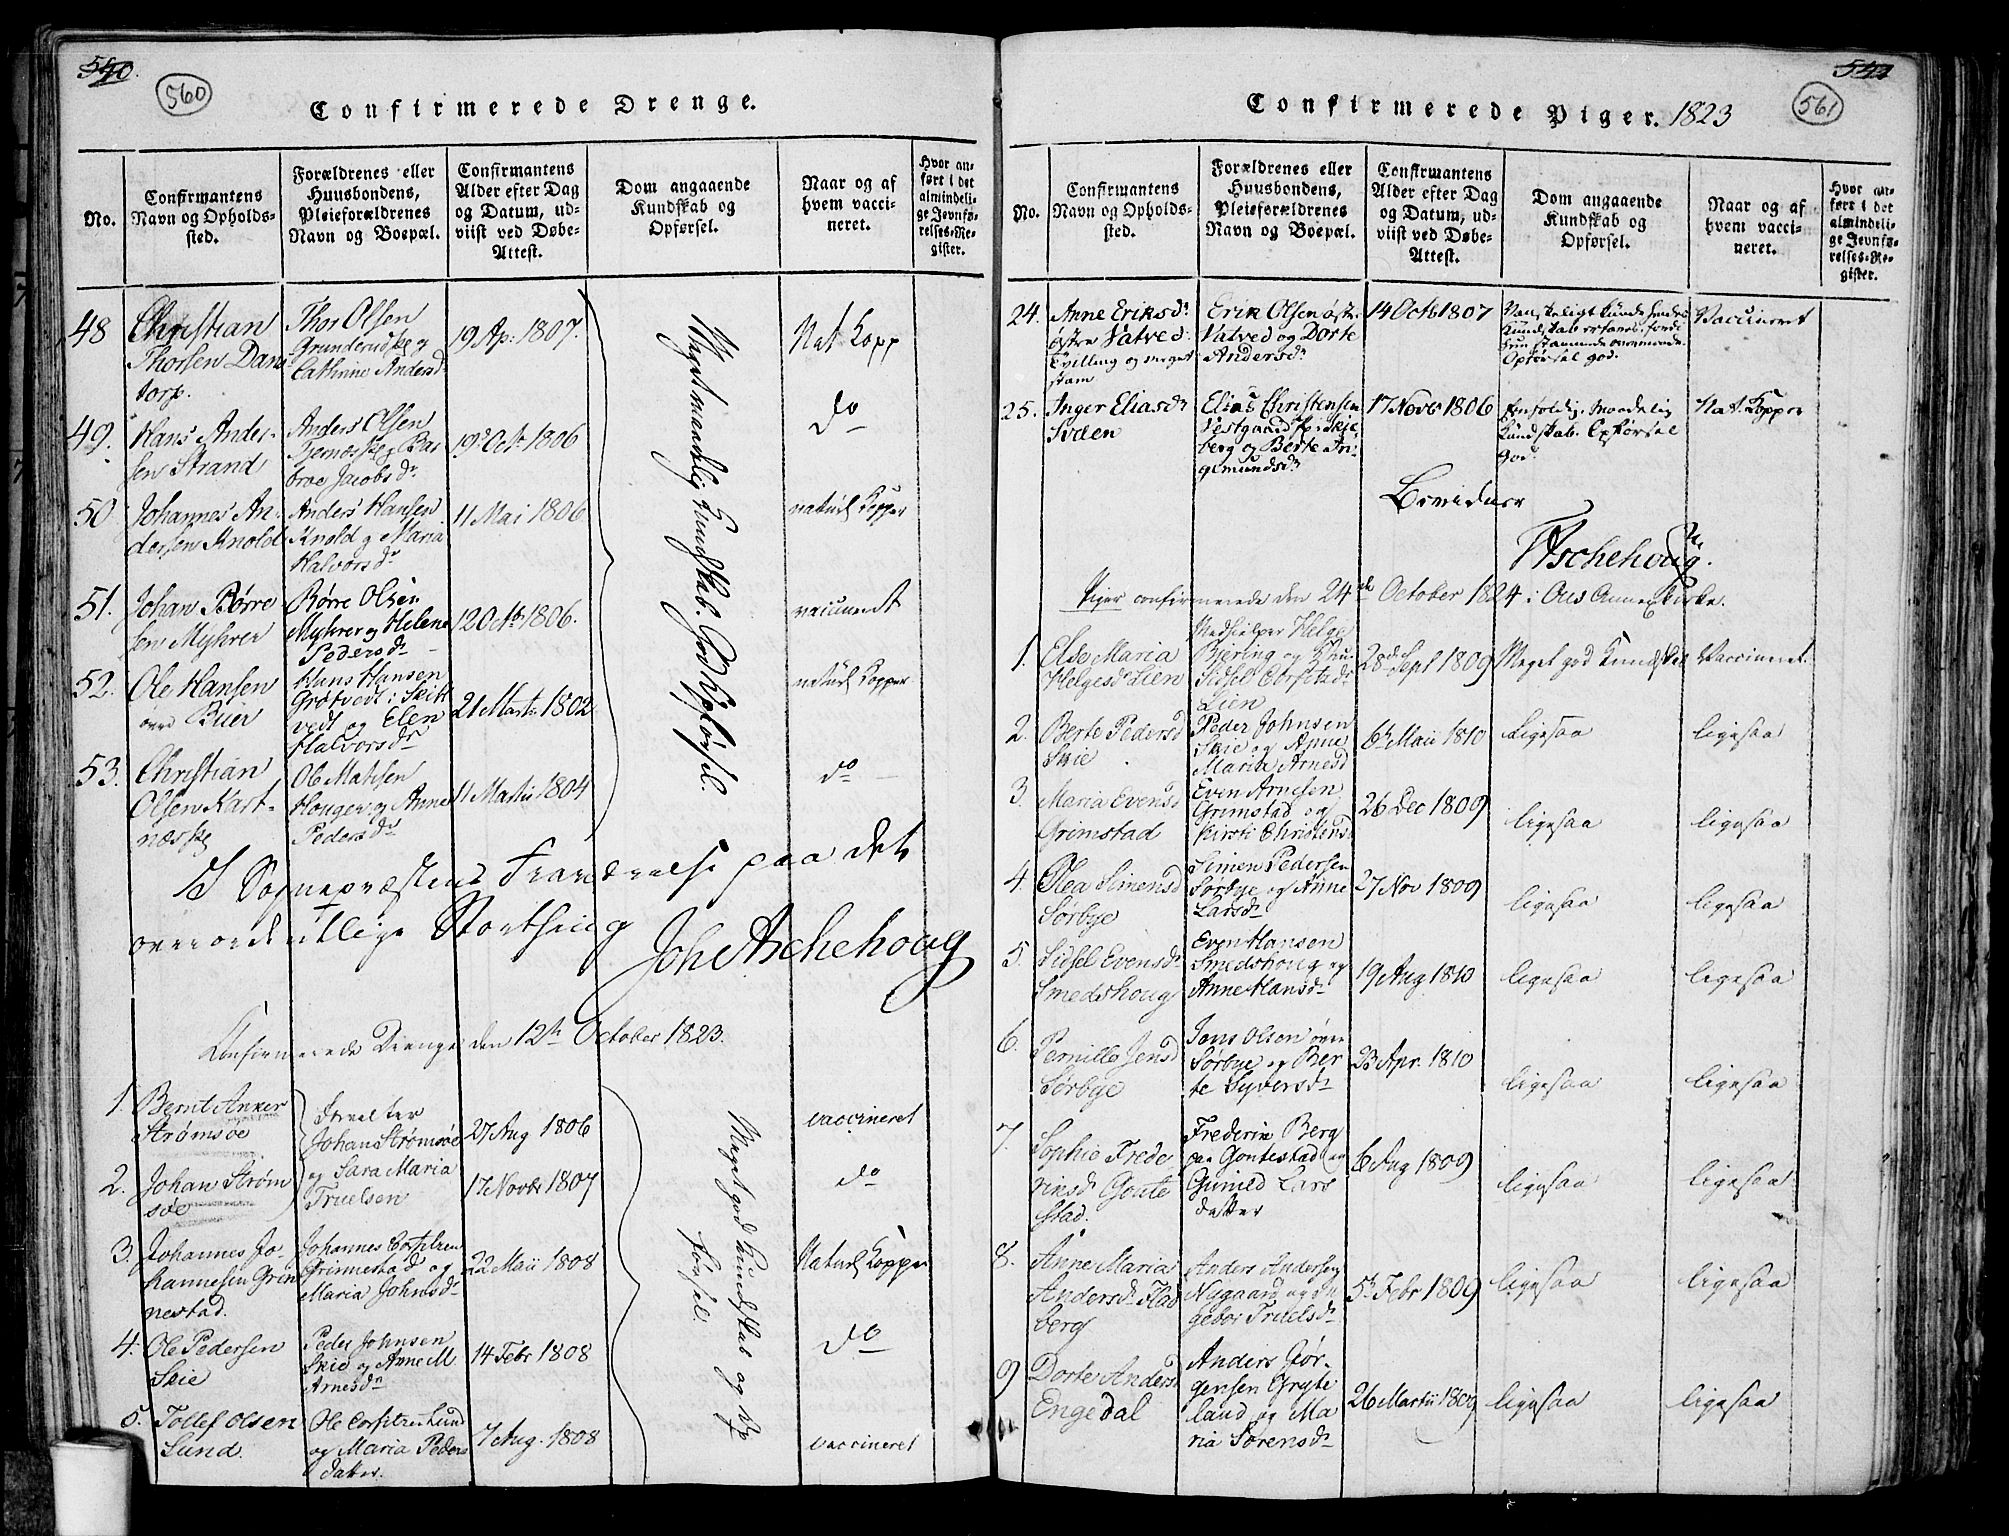 540.
560
Confirmerede Drenge.
No.
Confirmantens
Navn og Opholds-
sted.
Forældrenes eller
Huusbondens,
Pleieforældrenes
Navn og Boepæl.
Confirmantens
Alder efter Dag
og Datum, ud-
viist ved Døbe-
Attest.
Dom angaaende
Kundskab og
Opførsel.
Naar og af
hvem vacci-
neret.
Hvor an-
ført i det
almindeli-
ge Jevnfø-
relses-Re-
gister.
48
Christian
Thorsen Dams
torp.
Thor Olsen
Grunderudsk og
Cathrine Andersd
19 Ap: 1807.
Nat. Kopp
49.
Hans Ander-
sen Strand
Anders Olsen
og Bar
broe Jacobsdr
19 Oct 1806
do
50
Johannes An-
dersen Knold
Anders Hansen
Knold og Maria
Halvorsdr
11 Mai 1806
naturl Kopper
51.
Johan Børre
sen Myhrer
Børre Olsen
Myhrer og Helene
Pedersdr
12 Octb 1806.
vaccineret
52.
Ole Hansen
øvre Buer
Hans Hansen
Grøtvedt i Skiit
vedt og Elen
Halvorsdr
21 Marts 1802
naturl Kopper
53.
Christian
Olsen Kart-
næssk
Ole Matisen
Houger og Anne
Pedersdr
11 Martii 1804
do
Meget maadelig Kundskab. God Opførsel.
I Sognepræstens Fraværelse paa det
overordentlige Storthing
Joh Aschehoug
Confirmerede Drenge den 12te October 1823.
1.
Bernt Anker
Strømsøe
Forvalter
Johan Strømsøe
og Sara Maria
Truelsen
27 Aug 1806
vaccineret
2.
Johan Strøm
søe
17 Novbr 1807
do
3.
Johannes Jo-
hannesen Grin
nestad.
Johannes Torstensen
Grinnestad og
Maria Johnsdr
22 Maii 1808
Naturl Kopper
4.
Ole Pedersen
Skie
Peder Johnsen
Skie og Anne M
Arnesdr
14 Febr 1808
do
5.
Tollef Olsen
Lund.
Ole Lund
og Maria Peders
datter.
7 Aug. 1808
vaccineret
Meget god Kundskab og Op
førsel.
541
561
Confirmerede Piger. 1823
No.
Confirmantens
Navn og Opholds-
sted.
Forældrenes eller
Huusbondens,
Pleieforældrenes
Navn og Boepæl.
Confirmantens
Alder efter Dag
og Datum, ud-
viist ved Døbe-
Attest.
Dom angaaende
Kundskab og
Opførsel.
Naar og af
hvem vacci-
neret.
Hvor an-
ført i det
almindeli-
ge Jevnfø-
relses-Re-
gister.
24.
Anne Eriksdr
østre Vatved
Tvilling og meget
stam
Erik Olsen østre
Vatved og Dorte
Andersdr
14 Octb 1807
Vanskeligt kunde hendes
Kundskab erfares, fordi
hun stammede overmaade.
Opførsel god.
Vaccineret
25.
Inger Eliasdr
Elias Christensen
Vestgaard i Skje
berg og Berte In
gemundsdr
17 Novbr 1806
Eenfoldig. Maadelig
Kundskab. Opførsel
God.
Nat. Kopper
Bevidner
TAschehoug.
Piger confirmerede den 24de October 1824 i Ous Annexkirke.
1.
Else Maria
Helgesdr Lien
Medhielper Helge
Bjerling og
Sidsel Torstendr
Lien
28de Sept 1809
Meget god Kundskab
Vaccineret.
2.
Berte Pedersd
Skie
Peder Johnsen
Skie og Anne
Maria Arnesd
6te Maii 1810
Ligesaa
ligesaa
3.
Maria Evensd
Grimstad
Even Arnesen
Grimstad og
Kirsti Christensd
26 Dec 1809
ligesaa
ligesaa
4.
Olea Simensd
Sørbye
Simen Pedersen
Sørbye og Anne
Larsdr
27 Nov 1809
ligesaa
ligesaa
5.
Sidsel Evensdr
Smedshoug
Even Hansen
Smedshoug og
Anne Hansdr
19 Aug 1810
ligesaa
ligesaa
6.
Pernille Jensd
Sørbye
Jens Olsen øvre
Sørbye og Ber
te Syversdr
23 Apr. 1810
ligesaa
ligesaa
7.
Sophie Frede
riksdr Gonte
stad.
Frederik Berg
paa Gontestad og
Gunild Lars
datter
6 Aug 1809
ligesaa
ligesaa
8.
Anne Maria
Andersdr Flad
berg
Anders Andersen
Nygaard og In
gebor Truelsdr
5te Febr 1809
ligesaa
ligesaa
9
Dorte Andersd
Engedal
Anders Giør-
gensen Gryte
land og Ma
ria Sørensdr
26 Martii 1809
ligesaa
ligesaa